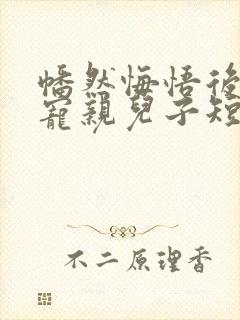 幡然悔悟後
寵親兒子短
不二原理香